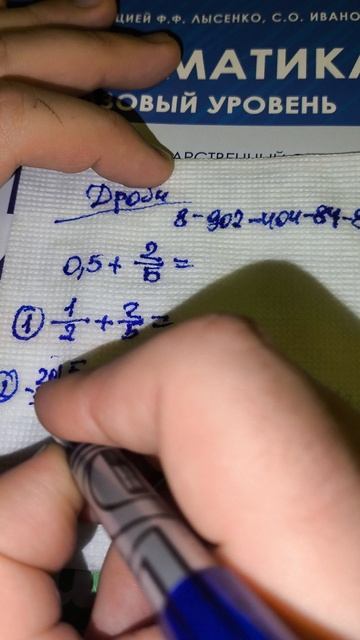 ЦИЕЙ Ф.Ф. ЛЫСЕНКО, С.О. ИВАНО
МАТИКА
ЗОВЫЙ УРОВЕНЬ
АРСТВЕННЫЙ
Дроби
8-902-404-84-8
0,5 + 2/5 =
① 1/2 + 2/5 =
②